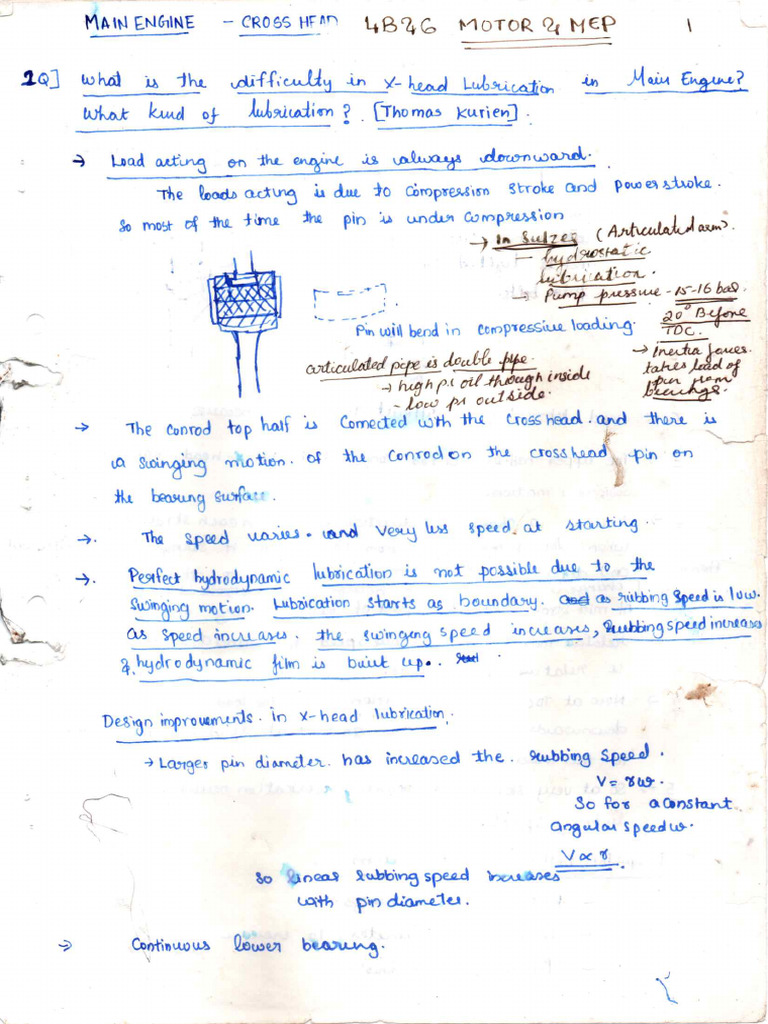 MAIN ENGINE - CROSS HEAD 4B26 MOTOR & MEP 1
1Q] What is the difficulty in X-head Lubrication in Main Engine?
What kind of lubrication? [Thomas Kurien].
→ Load acting on the engine is always downward.
The loads acting is due to compression stroke and power stroke.
So most of the time the pin is under compression
→ In Sulzer (Articulated arm).
- hydrostatic
lubrication.
→ Pump pressure - 15-16 bar
20° Before
TDC.
→ Inertia forces
takes load of
pin from
bearings.
Pin will bend in compressive loading.
articulated pipe is double pipe.
→ high pr oil through inside
- low pr outside.
→ The conrod top half is connected with the crosshead. and there is
a swinging motion. of the conrod on the crosshead pin on
the bearing surface.
→. The speed varies. and very less speed. at starting.
→. Perfect hydrodynamic lubrication is not possible due to the
swinging motion. Lubrication starts as boundary. as rubbing speed is low.
as speed increases. the swinging speed increases, rubbing speed increases
& hydrodynamic film is built up.
Design improvements. in X-head lubrication.
→ Larger pin diameter. has increased the. rubbing speed.
V = rω.
So for a constant
angular speed ω.
V ∝ r.
so linear rubbing speed increases
with pin diameter.
→ Continuous lower bearing.